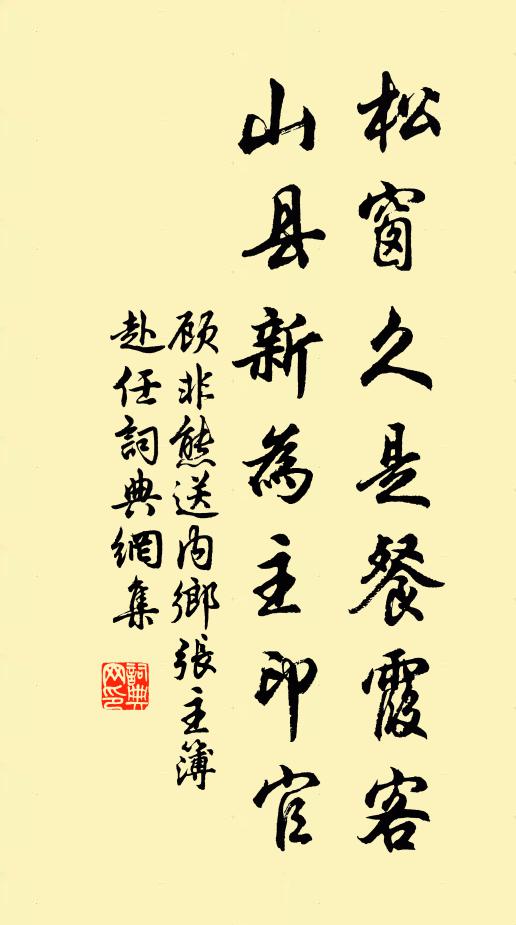 松窗久是餐霞客
山县新為主印官
顾非熊送内鄉張主簿
赴任詞典網集
詞典
网印